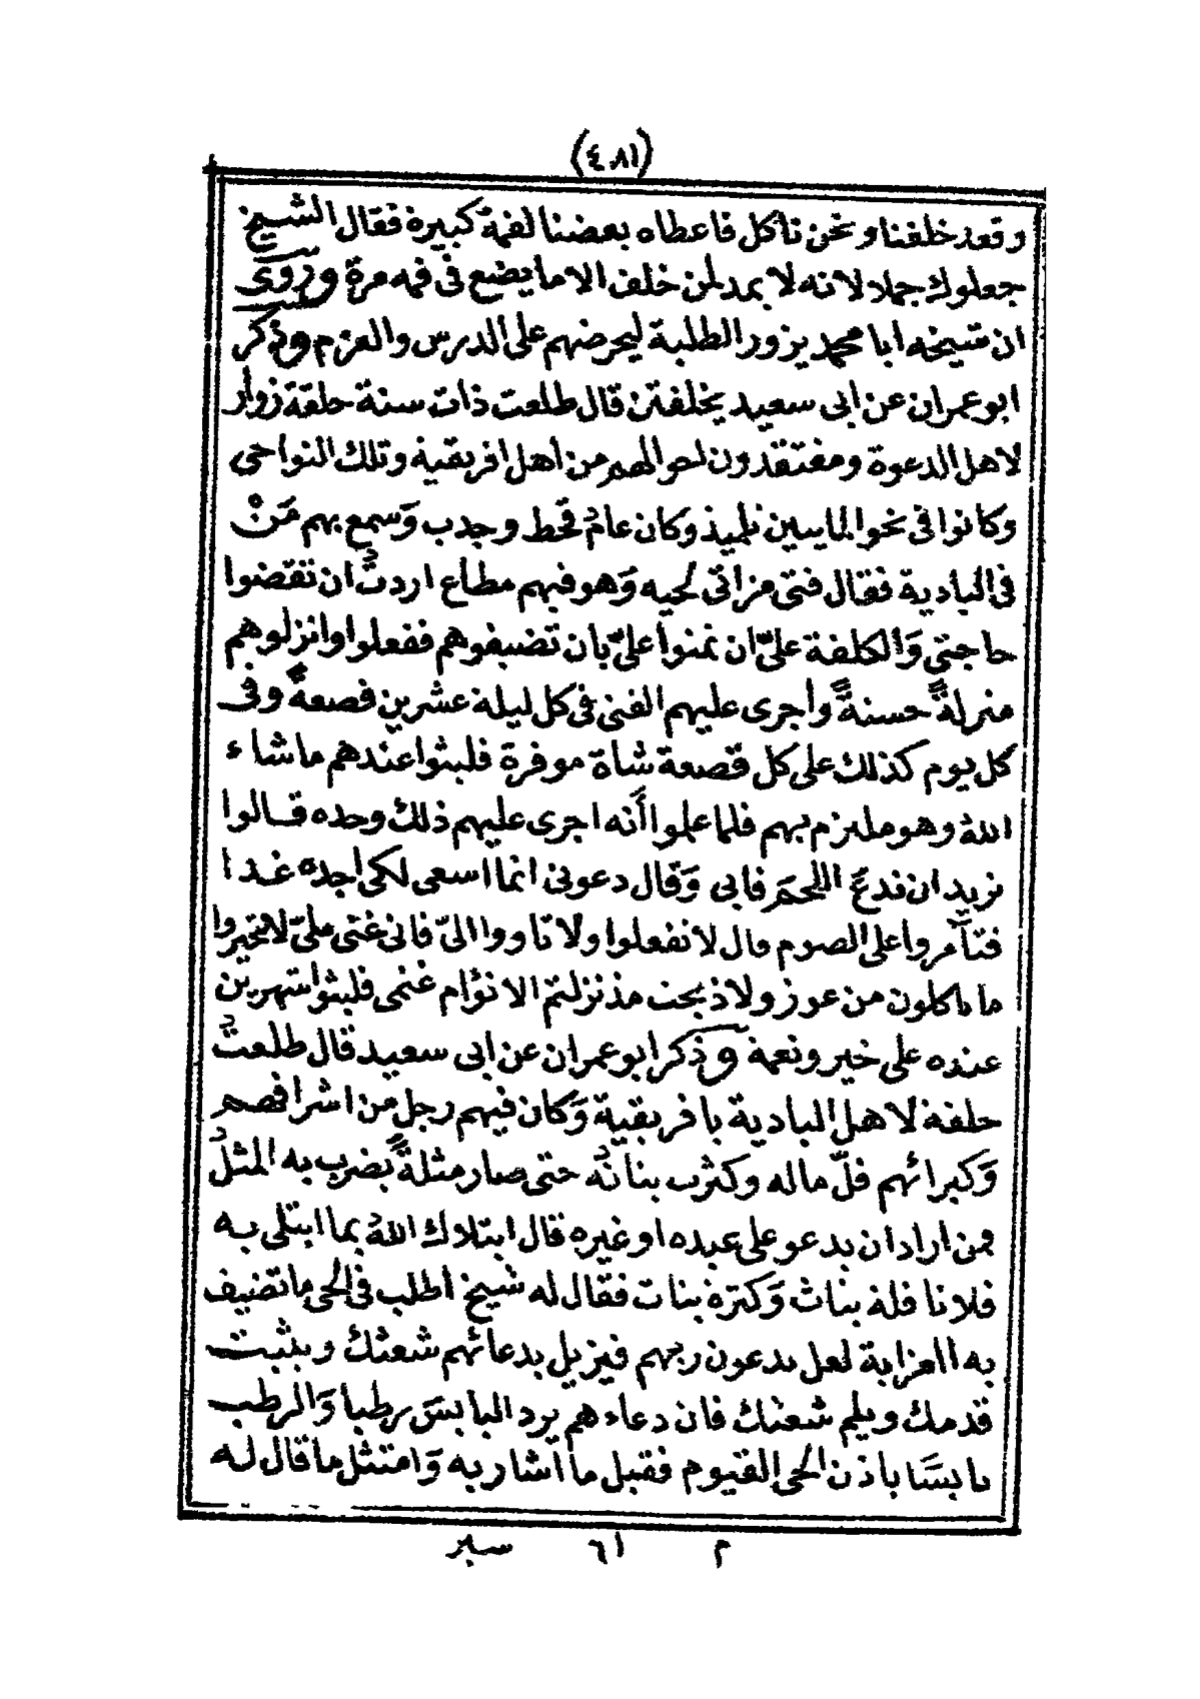 (٤٨١)
وقعد خلفنا ونحن ناكل فاعطاه بعضنا لقمة كبيرة فقال الشيخ
جعلوك جملا لانه لا يمد لمن خلف الا ما يضع فى فمه مرة وروى
ان شيخه ابا محمد يزور الطلبة ليحرضهم على الدرس والعزم وذكر
ابو عمران عن ابى سعيد يخلفتن قال طلعت ذات سنة حلقة زوار
لاهل الدعوة ومفتقدون لحوالهم من اهل افريقية وتلك النواحى
وكانوا فى نحو المايين تلميذ وكان عام قحط وجدب وَسمع بهم مَنْ
فى البادية فقال فتى مزاتى لحيه وَهو فيهم مطاع اردتُ ان تقضوا
حاجتى وَالكلفة علىّ ان تمنوا علىّ بان تضيفوهم ففعلوا وانزلوهم
منزلةً حسنةً واجرى عليهم الفتى فى كل ليلة عشرين قصعةً وفى
كل يوم كذلك على كل قصعة شاة موفرة فلبثوا عندهم ما شاء
اللهُ وهو ملتزم بهم فلما علموا أَنه اجرى عليهم ذلك وحده قالوا
نريد ان ندعَ اللحمَ فابى وَقال دعونى انما اسعى لكى اجده غدا
فتآمروا على الصوم فال لا تفعلوا ولا تاووا الىّ فانى غنى ملىّ لا تتخيروا
ما تاكلون من عوز ولا ذبحت مذ نزلتم الا تؤام غنمى فلبثوا شهرين
عنده على خير ونعمة وذكر ابو عمران عن ابى سعيد قال طلعتُ
حلقة لاهل البادية بافريقية وَكان فيهم رجل من اشرافهم
وَكبرائهم قلّ ماله وكثرت بناتُه حتى صار مثلةً يضرب به المثلُ
فمن اراد ان يدعو على عبده او غيره قال ابتلاك اللهُ بما ابتلى به
فلانا قلة بنات وَكثرة بنات فقال له شيخ اطلب فى الحى ما تضيف
به العزابة لعل يدعون ربهم فيزيل بدعائهم شعثك ويثبت
قدمك ويلم شعثك فان دعاءهم يرد اليابسَ رطبا وَالرطب
يابسَا باذن الحى القيوم فقبل ما اشار به وَامتثل ما قال له
م ٦١ سير